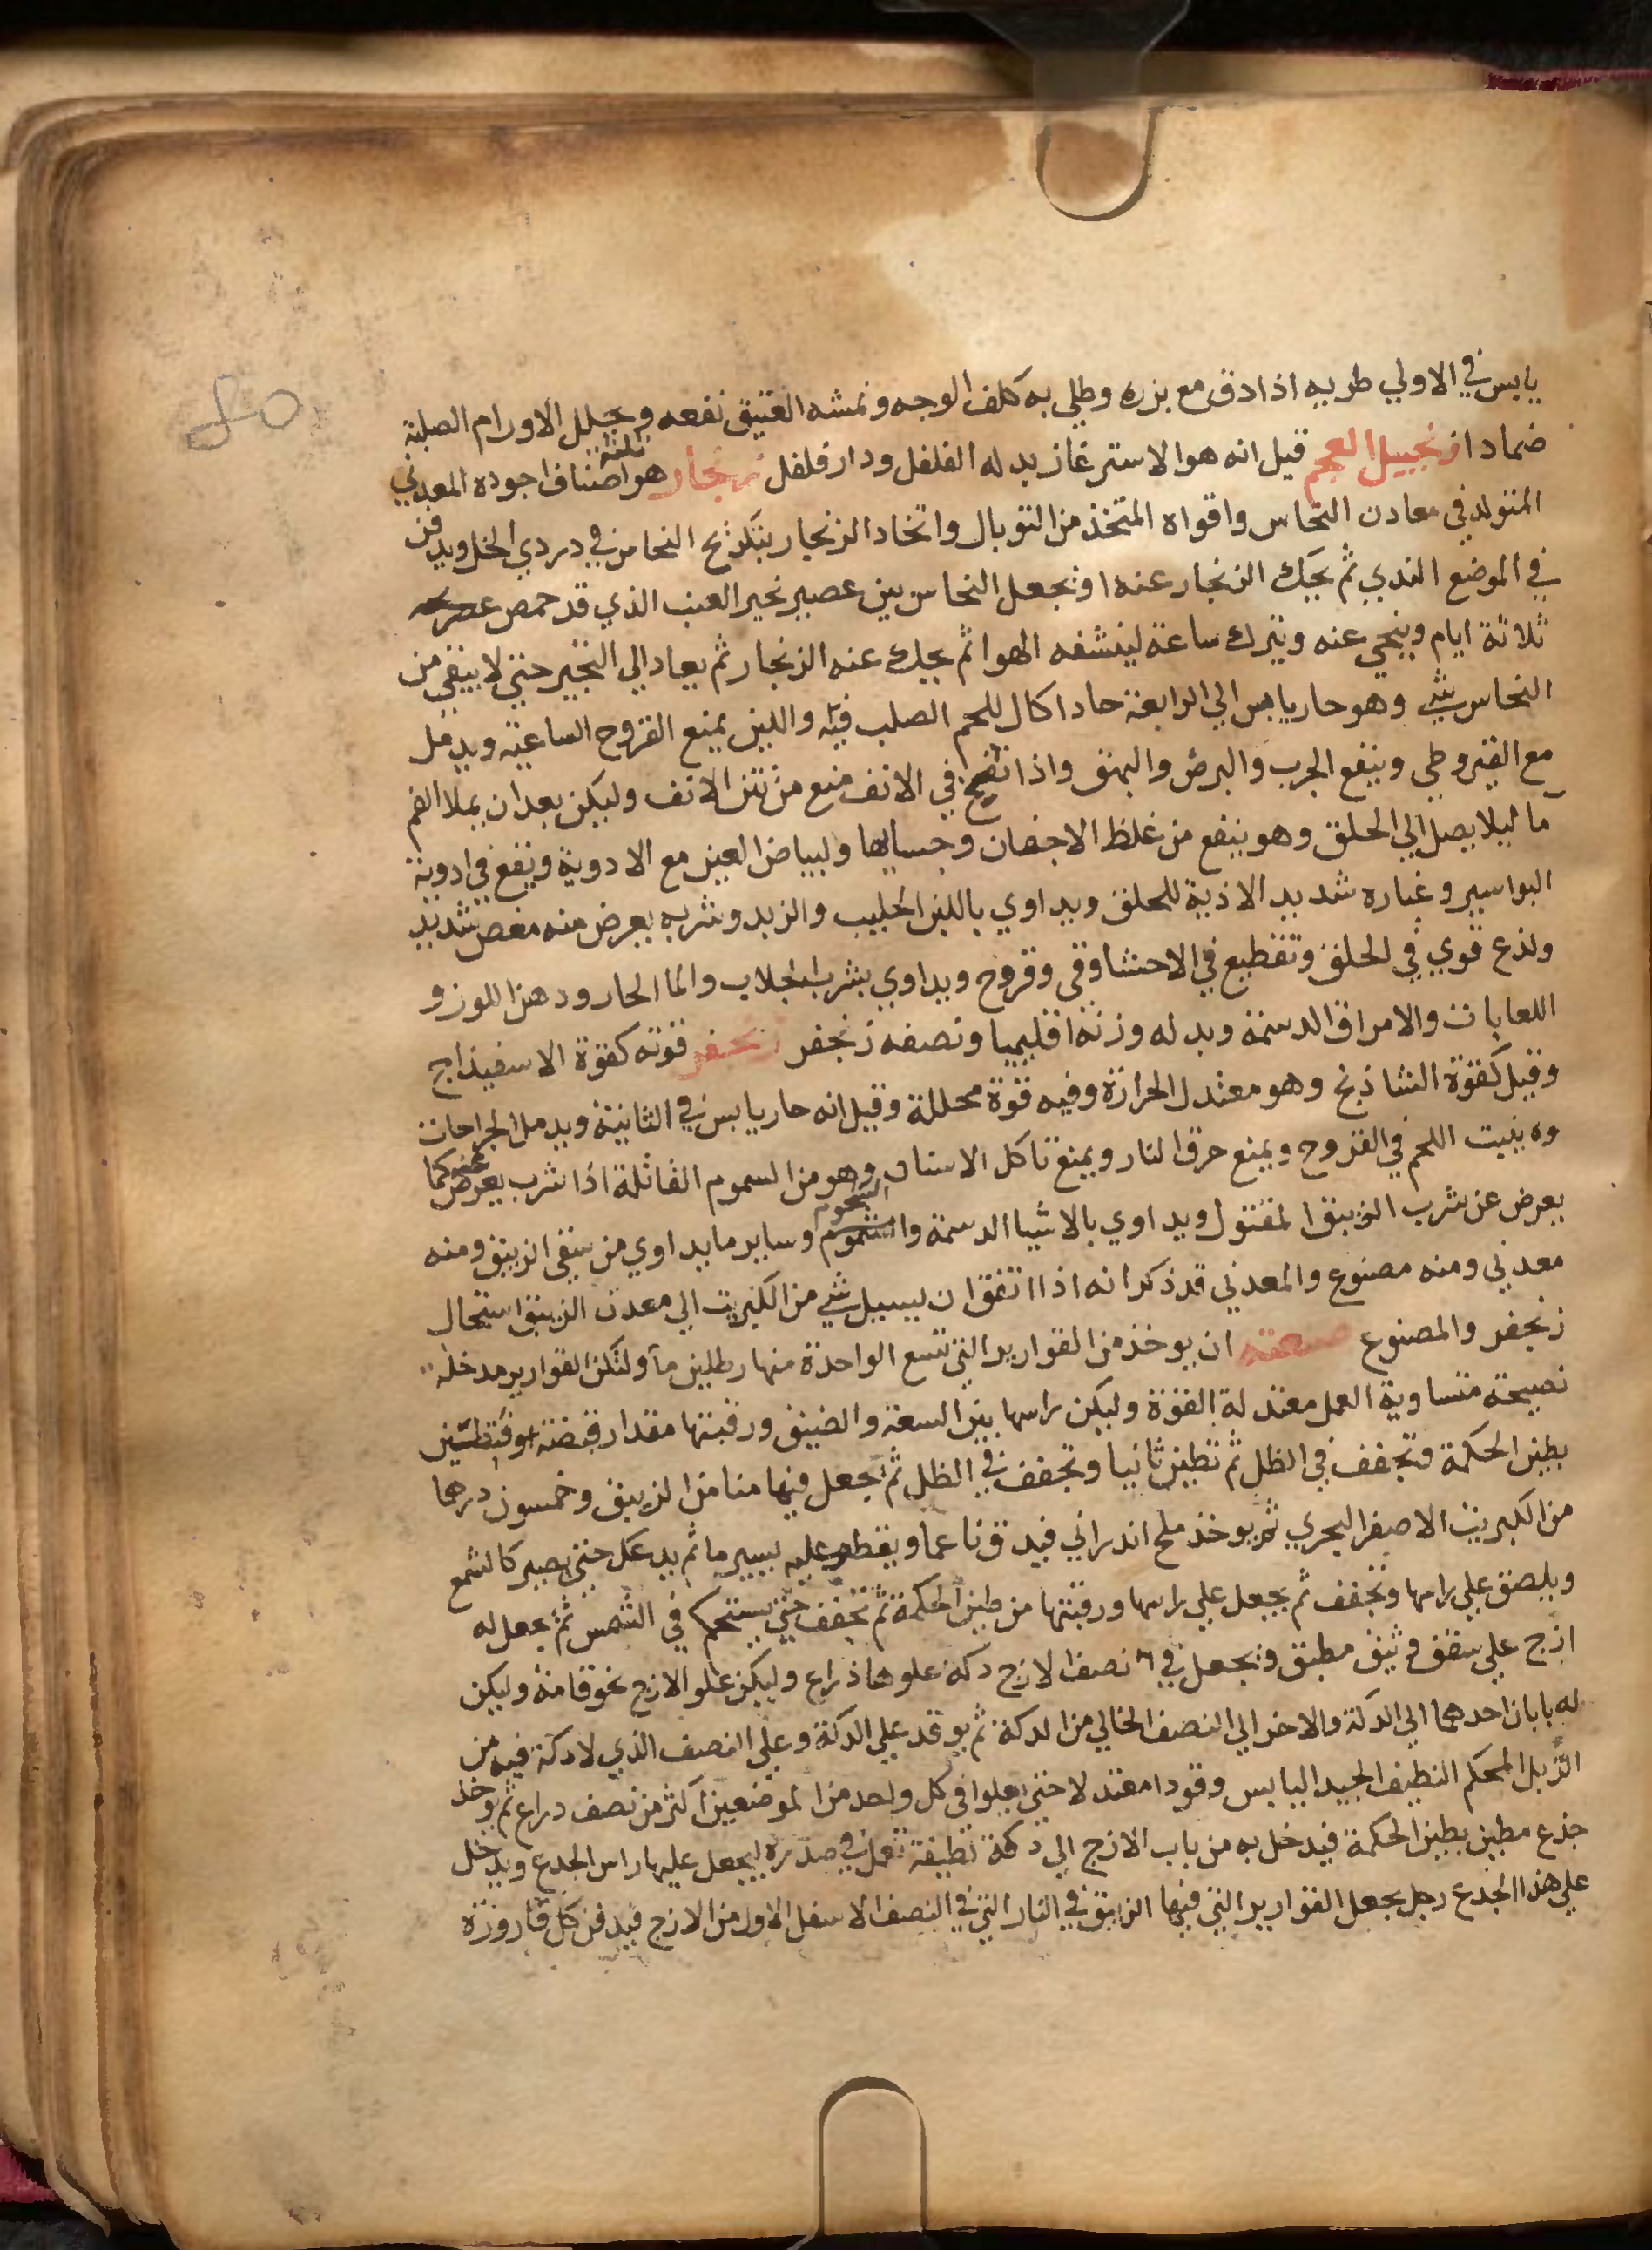 يابس في الاولي طريه اذا دق مع بزره وطلي به كلف الوجه ونمشه العتيق نفعه ويحلل الاورام الصلبة
ضمادا زنجبيل العجم قيل انه هو الاسترغاز بدله الفلفل ودار فلفل زنجار هو ثلثة اصناف اجوده المعدني
المتولد في معادن النحاس واقواه المتخذ من التوبال واتخاد الزنجار بتكريج النحاس في دردي الخل ويدفن
في الموضع الندي ثم يحك الزنجار عنه او يجعل النحاس بين عصير نجير العنب الذي قد حمص
ثلاثة ايام وينحي عنه ويترك ساعة لينشفه الهوا ثم يحك عنه الزنجار ثم يعاد الي النجير حتي لا يبقي من
النحاس شي وهو حار يابس الي الرابعة حاد اكال للحم الصلب فيه واللين يمنع القروح الساعية ويدمل
مع القيروطي وينفع الجرب والبرص والبهق واذا نفخ في الانف منع من نتن الانف وليكن بعد ان يملا الفم
ما ليلا يصل الي الحلق وهو ينفع من غلظ الاجفان وجسايها ولبياض العين مع الادوية ويقع في ادوية
البواسير وغباره شديد الاذية للحلق ويداوي باللبن الحليب والزبد وشربه يعرض منه مغص شديد
ولذع قوي في الحلق وتقطيع في الاحشا وقي وقروح ويداوي بشرب الجلاب والما الحار ودهن اللوز و
اللعابات والامراق الدسمة وبدله وزنه اقليميا ونصفه زنجفر زنجفر قوته كقوة الاسفيذاج
وقيل كقوة الشاذنج وهو معتدل الحرارة وفيه قوة محللة وقيل انه حار يابس في الثانية ويدمل الجراحات
وه ينبت اللحم في القروح ويمنع حرق النار ويمنع تاكل الاسنان وهو من السموم القاتلة اذا شرب يعرض عنه كما
يعرض عن شرب الزيبق المقتول ويداوي بالاشيا الدسمة والشحوم وساير ما يداوي من سقي الزيبق ومنه
معدني ومنه مصنوع والمعدني قد ذكر انه اذا اتفق ان يسيل شي من الكبريت الي معدن الزيبق استحال
زنجفر والمصنوع صنعته ان يوخذ من القوارير التي تسع الواحدة منها رطلين ما ولتكن القوارير مدخلة
نصيحة متساوية العمل معتدلة القوة وليكن راسها بين السعة والضيق ورقبتها مقدار قبضة
بطين الحكمة وتجفف في الظل ثم تطين ثانيا وتجفف في الظل ثم تجعل فيها منا من الزيبق وخمسون درهما
من الكبريت الاصفر البحري ثم يوخذ ملح اندراني فيدق ناعما ويقطر عليه يسير ما ثم يدعك حتي يصير كالشمع
ويلصق علي راسها وتجفف ثم يجعل علي راسها ورقبتها من طين الحكمة ثم تجفف حتي يستحكم في الشمس ثم يجعل له
ازج علي سقف وثيق مطبق ويجعل في نصف الازج دكة علوها ذراع وليكن علو الازج نحو قامة وليكن
له بابان احدهما الي الدكة والاخر الي النصف الخالي من الدكة ثم يوقد علي الدكة وعلي النصف الذي لا دكة فيه من
الزبل المحكم النظيف الجيد اليابس وقودا معتدلا حتي يعلوا في كل واحد من الموضعين اكثر من نصف دراع ثم يوخذ
جذع مطين بطين الحكمة فيدخل به من باب الازج الي دكة نظيفة تعمل في صدره ليجعل عليها راس الجدع ويدخل
علي هذا الجدع رجل يجعل القوارير التي فيها الزيبق في النار التي في النصف الاسفل الاول من الازج فيدفن كل قارورة